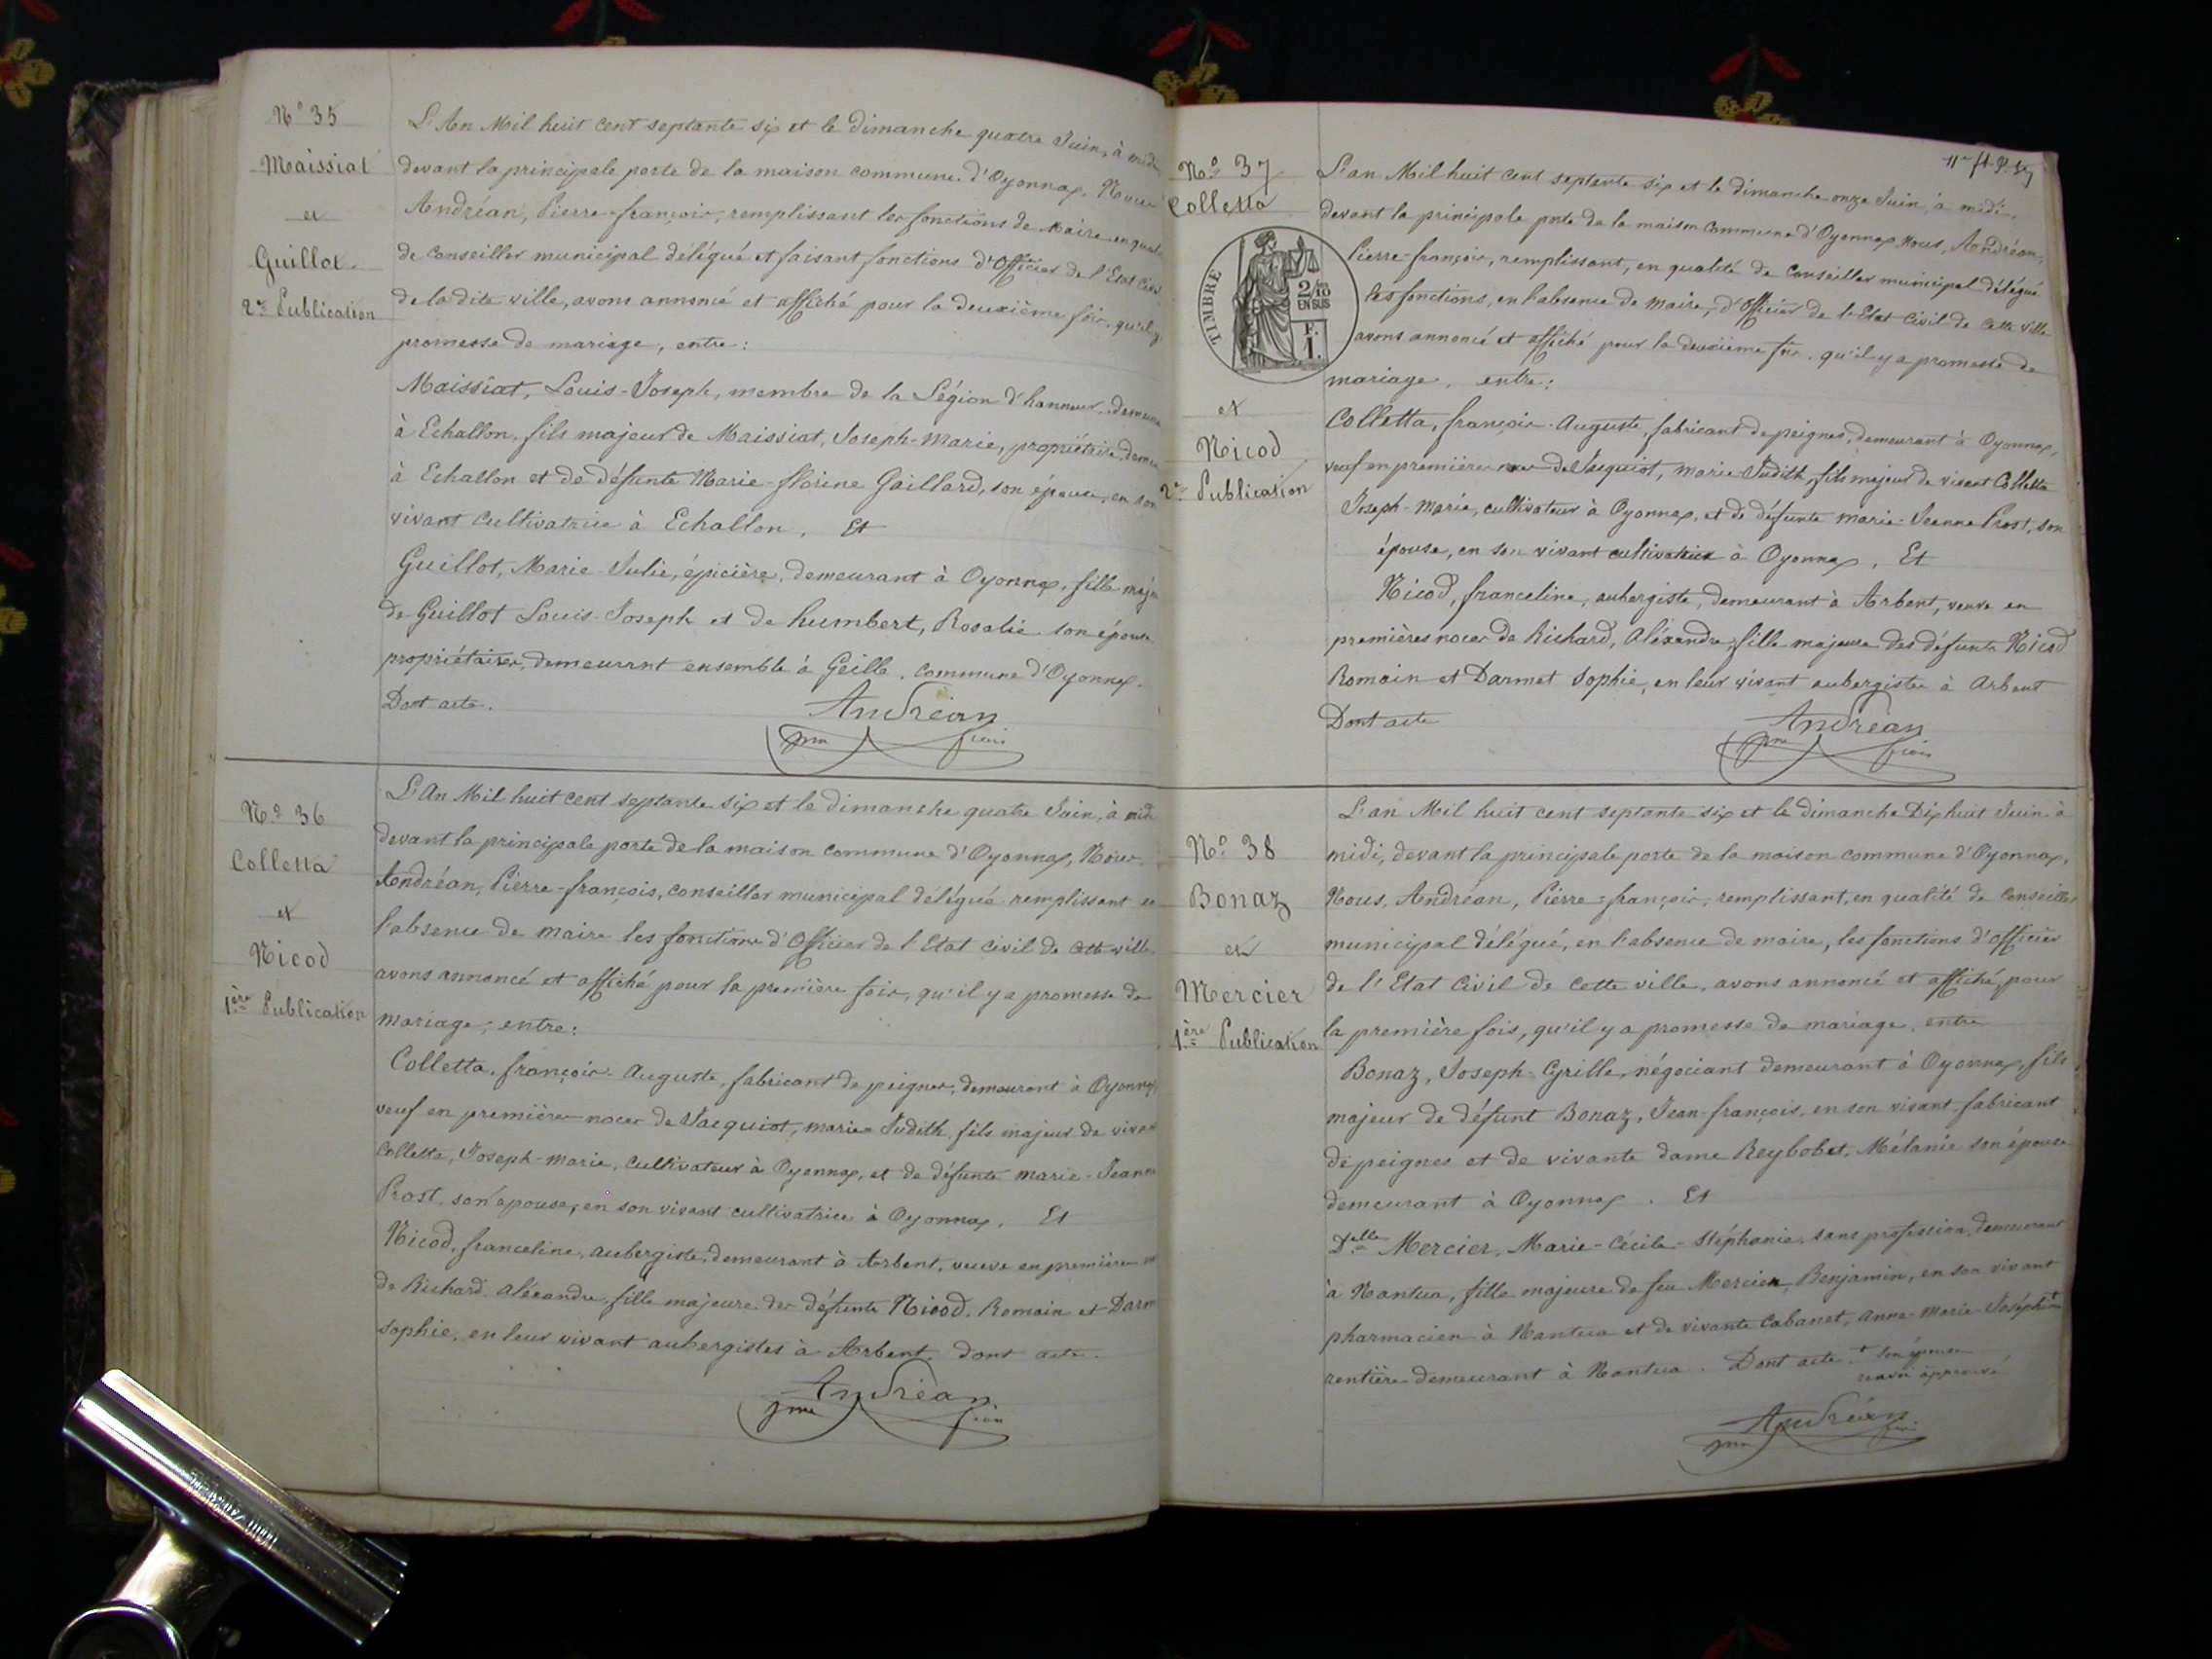 N° 35
Maissiat
et
Guillot
2e Publication
L'An Mil huit cent septante six et le dimanche quatre Juin, à midi
devant la principale porte de la maison commune d'Oyonnax. Nous
Andréan, Pierre-françois, remplissant les fonctions de maire en
de conseiller municipal délégué et faisant fonctions d'Officier de l'Etat Civil
de la dite ville, avons annoncé et affiché pour la deuxième fois, qu'il y
promesse de mariage, entre :
Maissiat, Louis-Joseph, membre de la Légion d'honneur,
à Echallon, fils majeur de Maissiat, Joseph-Marie, propriétaire,
à Echallon et de défunte Marie-florine Gaillard, son épouse, en son
vivant cultivatrice à Echallon. Et
Guillot, Marie-Julie, épicière, demeurant à Oyonnax, fille
de Guillot Louis-Joseph et de humbert, Rosalie son épouse
propriétaires, demeurant ensemble à Geille, commune d'Oyonnax.
Dont acte.
Andréan
N° 36
Colletta
et
Nicod
1ère Publication
L'An Mil huit cent septante six et le dimanche quatre Juin, à midi
devant la principale porte de la maison commune d'Oyonnax, Nous
Andréan, Pierre-françois, conseiller municipal délégué remplissant en
l'absence de maire les fonctions d'Officier de l'Etat civil de cette ville
avons annoncé et affiché pour la première fois, qu'il y a promesse de
mariage, entre :
Colletta, françois-Auguste, fabricant de peignes, demeurant à Oyonnax
veuf en premières noces de Jacquiot, marie Judith, fils majeur de
Colletta, Joseph-Marie, cultivateur à Oyonnax, et de défunte marie-Jeanne
Prost, son épouse, en son vivant cultivatrice à Oyonnax. Et
Nicod, franceline, aubergiste, demeurant à Arbent, veuve en premières
de Richard Aléxandre, fille majeure des défunts Nicod, Romain et
sophie, en leur vivant aubergistes à Arbent. dont acte.
Andréan
N° 37
Colletta
et
Nicod
2e Publication
TIMBRE
2/10
EN SUS
F.
1.
L'an Mil huit cent septante six et le dimanche onze Juin à midi,
devant la principale porte de la maison commune d'Oyonnax Nous, Andréan,
Pierre-françois, remplissant, en qualité de conseiller municipal délégué
les fonctions, en l'absence de maire, d'Officier de l'Etat Civil de cette ville
avons annoncé et affiché pour la deuxième fois, qu'il y a promesse de
mariage, entre :
Colletta, françois-Auguste, fabricant de peignes, demeurant à Oyonnax,
veuf en premières noces de Jacquiot, marie-Judith, fils majeur de vivant Colletta
Joseph-Marie, cultivateur à Oyonnax, et de défunte marie-Jeanne Prost, son
épouse, en son vivant cultivatrice à Oyonnax. Et
Nicod, franceline, aubergiste, demeurant à Arbent, veuve en
premières noces de Richard, Aléxandre, fille majeure des défunts Nicod
Romain et Darmet Sophie, en leur vivant aubergistes à Arbent
Dont acte
Andréan
N° 38
Bonaz
et
Mercier
1ère Publication
L'an Mil huit cent septante six et le dimanche Dix huit Juin à
midi, devant la principale porte de la maison commune d'Oyonnax,
Nous, Andréan, Pierre-françois, remplissant, en qualité de conseiller
municipal délégué, en l'absence de maire, les fonctions d'officier
de l'Etat Civil de cette ville, avons annoncé et affiché, pour
la première fois, qu'il y a promesse de mariage, entre
Bonaz, Joseph-Cyrille, négociant demeurant à Oyonnax, fils
majeur de défunt Bonaz, Jean-françois, en son vivant fabricant
de peignes et de vivante dame Reybobet, Mélanie son épouse
demeurant à Oyonnax. Et
Delle Mercier, Marie-Cécile-Stéphanie, sans profession, demeurant
à Nantua, fille majeure de feu Mercier, Benjamin, en son vivant
pharmacien à Nantua et de vivante Cabanet, Anne-Marie-Joséphine +
rentière demeurant à Nantua. Dont acte. + son épouse
renvoi approuvé
Andréan